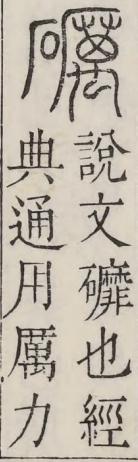 礪
說文䃺也經
典通用厲力